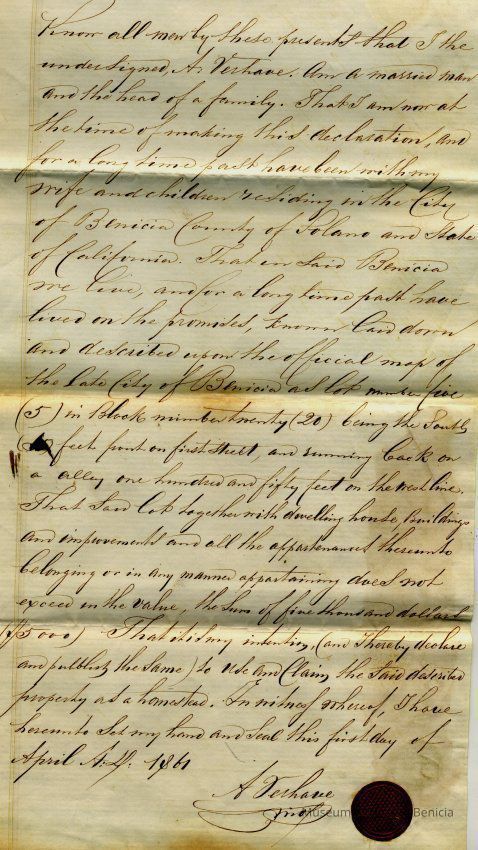 Know all men by these presents that I the
undersigned, A. Verhave. Am a married man
and the head of a family. That I am now at
the time of making this declaration, and
for a long time past have been with my
wife and children residing in the City
of Benicia County of Solano and State
of California. That in said Benicia
we live, and for a long time past have
lived on the premises, known laid down
and described upon the official map of
the late City of Benicia as lot number five
(5) in Block number twenty (20) being the South
feet front on first street, and running back on
a alley one hundred and fifty feet on the west line.
That Said lot together with dwelling house, buildings
and improvements and all the appurtenances thereunto
belonging or in any manner appertaining does not
exceed in the value, the sum of five thousand dollars
($5000). That it is my intention, (and I hereby declare
and publish the same) to use and Claim the said described
property as a homestead. In witness whereof, I have
hereunto set my hand and seal this first day of
April A.D. 1861
A Verhave
Museum Benicia